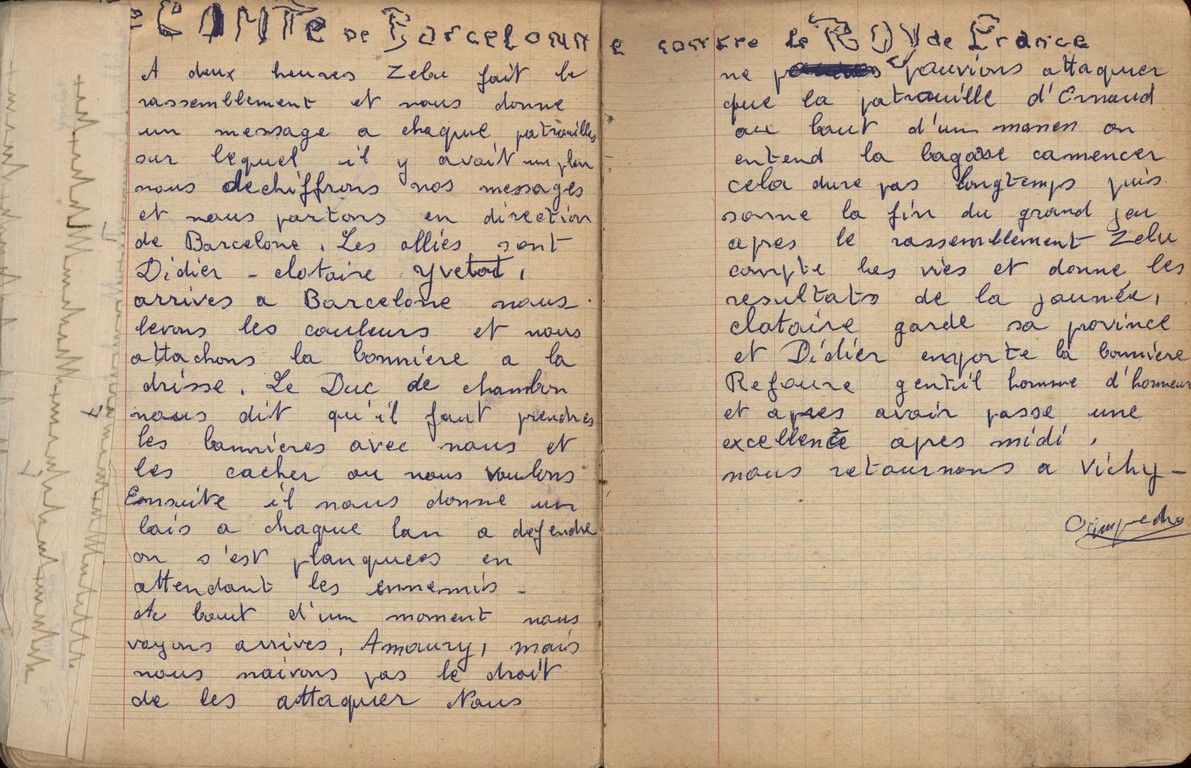 Le COMTE de Barcelonne contre le ROY de France
A deux heures Zebu fait le
rassemblement et nous donne
un message a chaque patrouilles
sur lequel il y avait un plan
nous dechiffrons nos messages
et nous partons en direction
de Barcelone. Les alliés sont
Didier - clotaire Yvetot,
arrives a Barcelone nous
levons les couleurs et nous
attachons la bannière a la
drisse. Le Duc de chambon
nous dit qu'il faut prendres
les bannieres avec nous et
les cacher ou nous voulons
Ensuite il nous donne un
lais a chaque lan a defendre
on s'est planquees en
attendant les ennemis -
Au bout d'un moment nous
voyons arrives, Amaury, mais
nous naivons pas le droit
de les attaquer Nous
ne pouvions attaquer
que la patrouille d'Ernaud
au bout d'un momen on
entend la bagare camencer
cela dure pas longtemps puis
sonne la fin du grand jeu
apres le rassemblement Zebu
compte les vies et donne les
resultats de la journée,
clotaire garde sa province
et Didier emporte la banniere
Refoure gentil homme d'honneur
et apres avoir passe une
excellente apres midi,
nous retournons a Vichy -